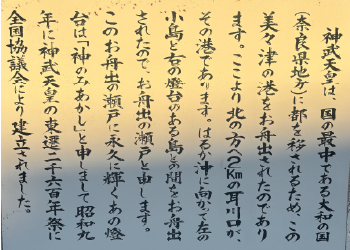 神武天皇は、国の最中である大和の国
(奈良県地方)に都を移されるため、この
美々津の港をお舟出されたのであり
ます。ここより北の方へ2Kmの耳川が、
その港であります。はるか沖に向かって左の
小島と右の燈台のある島との間をお舟出
されたので、お舟出の瀬戸と申します。
このお舟出の瀬戸に永久に輝くあの燈
台は「神のみあかし」と申しまして昭和九
年に神武天皇の東遷二千六百年祭に
全国協議会により建立されました。